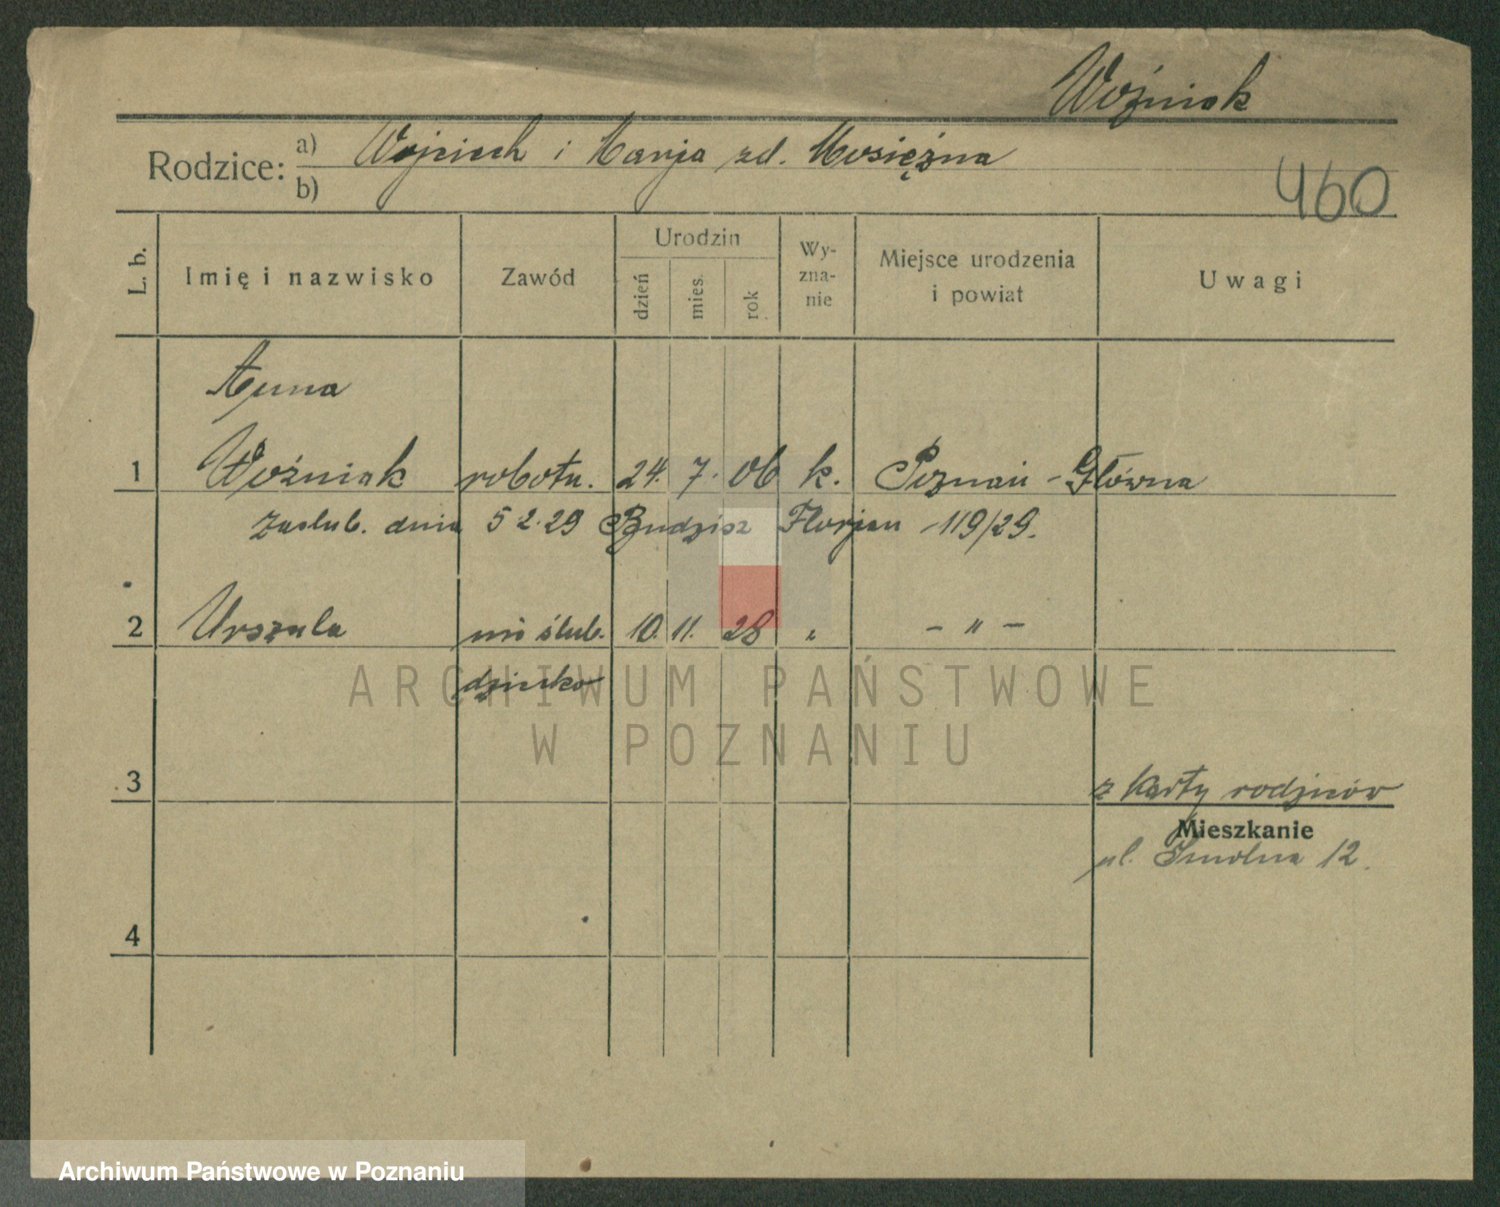 Woźniak
Rodzice: a) Wojciech i Marja zd. Mosiężna
b)
460
L. b. Imię i nazwisko Zawód Urodzin dzień mies. rok Wy-zna-nie Miejsce urodzenia i powiat Uwagi
Anna
1 Woźniak robotn. 24. 7. 06 k. Poznań - Główna
zaślub. dnia 5 2. 29 Budzisz Florjan 119/29.
2 Urszula nieślub. 10. 11. 28 " - " -
dziecko
ARCHIWUM PAŃSTWOWE
W POZNANIU
3 z karty rodziców
Mieszkanie
ul. Smolna 12.
4
Archiwum Państwowe w Poznaniu